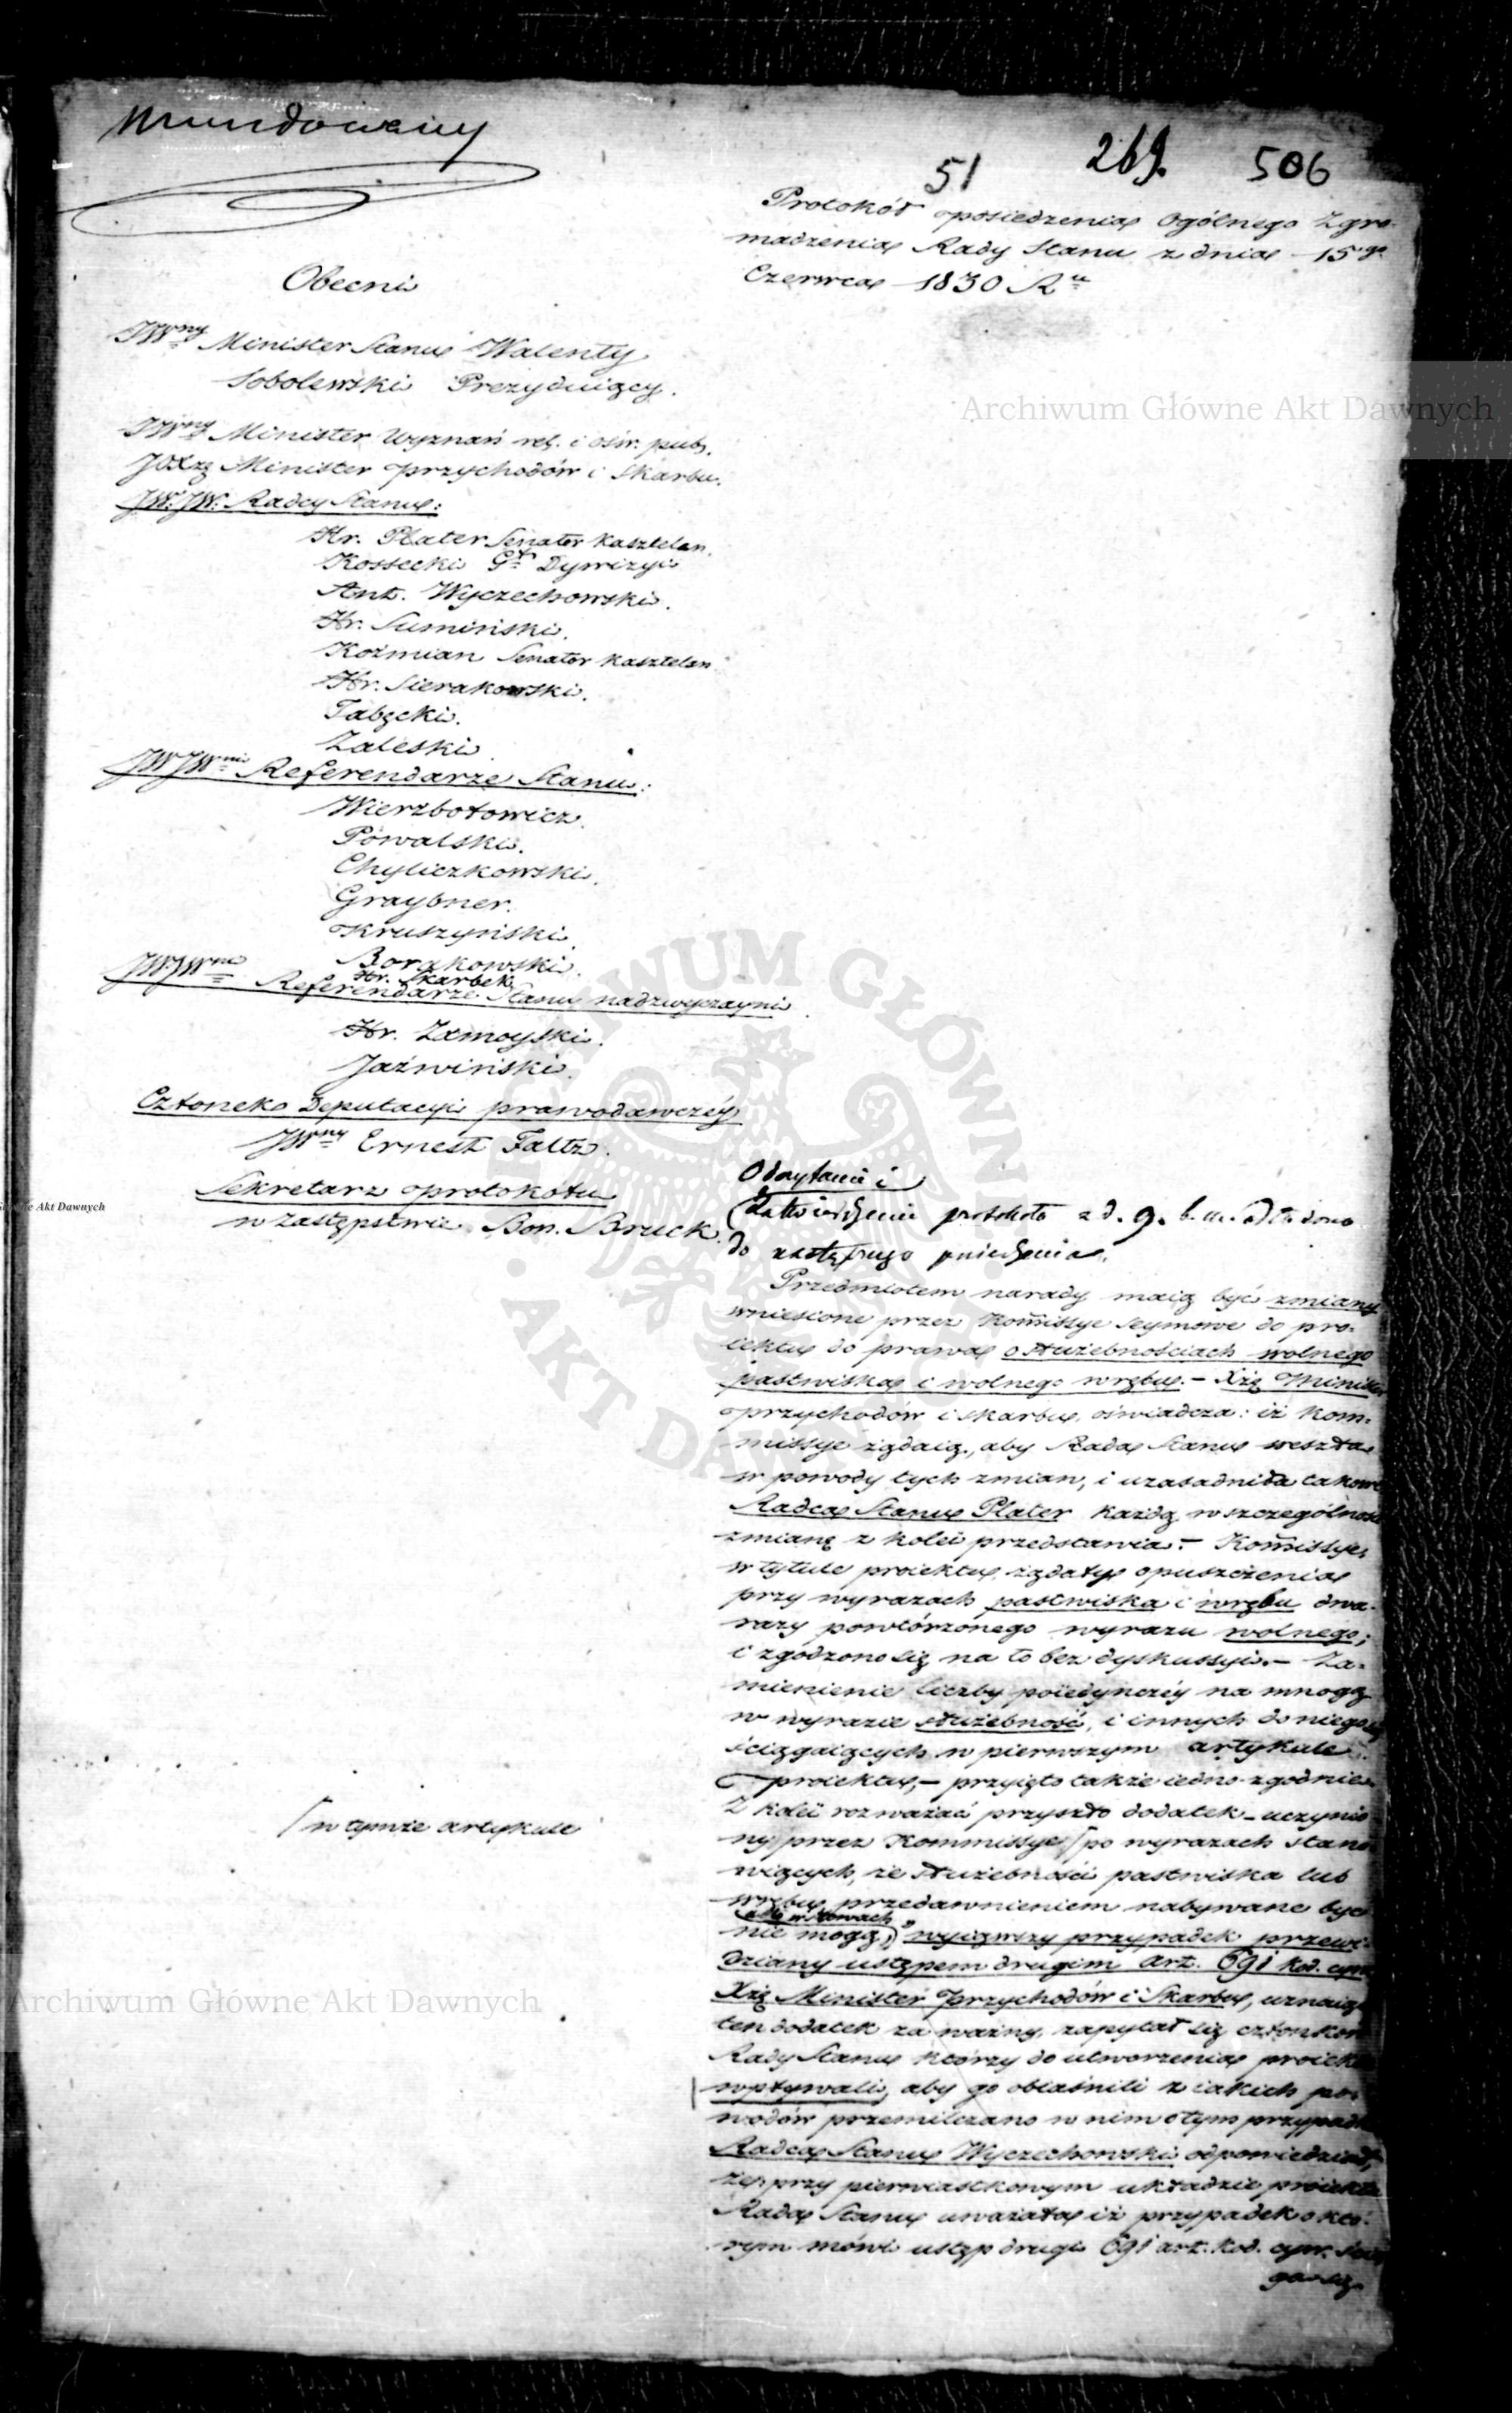 Mundowany
51 269. 506
Protokół posiedzenia Ogólnego Zgro-
madzenia Rady Stanu z dnia 15go
Czerwca 1830 Ru
Obecni
JWny Minister Stanu Walenty
Sobolewski Prezyduiący.
JWny Minister Wyznań rel. i ośw. pub.
JOXzę Minister przychodów i skarbu.
JW. JW. Radcy Stanu:
Hr. Plater Senator Kasztelan.
Kossecki Gł Dywizyi
Ant. Wyczechowski.
Hr. Sumiński.
Koźmian Senator Kasztelan.
Hr. Sierakowski.
Tabęcki.
Zaleski.
JWJWni Referendarze Stanu:
Wierzbołowicz.
Powalski.
Chyliczkowski.
Graybner.
Kruszyński.
Borakowski.
Hr. Skarbek
JWJWni Referendarze Stanu nadzwyczayni
Hr. Zamoyski.
Jaźwiński.
Członek Deputacyi prawodawczéy
JWny Ernest Faltz.
Sekretarz protokołu
w zastępstwie Bon. Bruck.
Odczytanie i
zatwierdzenie protokołu z d. 9. b. m. odłożono
do następnego posiedzenia.
Przedmiotem narady maią być zmiany
wniesione przez Kommissye Seymowe do pro-
iektu do prawa o służebnościach wolnego
pastwiska i wolnego wrębu. – Xżę Minister
przychodów i skarbu, oświadcza: iż Kom-
missye żądaią, aby Rada Stanu weszła
w powody tych zmian, i uzasadniła takowe
Radca Stanu Plater każdą w szczególności
zmianę z kolei przedstawia. – Kommissye
w tytule proiektu żądały opuszczenia
przy wyrazach pastwiska i wrębu dwa-
razy powtórzonego wyrazu wolnego;
i zgodzono się na to bez dyskussyi. – Za-
mienienie liczby poiedynczéy na mnogą
w wyrazie służebność, i innych do niego się
ściągaiących w pierwszym artykule
proiektu, – przyięto także iedno-zgodnie.
Z kolei rozważać przyszło dodatek uczynio-
ny przez Kommissye / po wyrazach stano-
/ w tymże artykule
wiących, że służebności pastwiska lub
wrębu przedawnieniem nabywane być
nie mogą, w słowach „wyiąwszy przypadek przewi-
dziany ustępem drugim art. 691 kod. cyw.
Xżę Minister Przychodów i Skarbu, uznaiąc
ten dodatek za ważny, zapytał się członków
Rady Stanu którzy do utworzenia proiektu
wpływali, aby go obiaśnili z iakich po-
wodów przemilczano w nim o tym przypadku
Radca Stanu Wyczechowski odpowiedział,
że przy pierwiastkowym układzie proiektu
Rada Stanu uważała iż przypadek o któ-
rym mówi ustęp drugi 691 art. kod. cyw. ścią-
ga się
Archiwum Główne Akt Dawnych
ARCHIWUM GŁÓWNE
AKT DAWNYCH
Główne Akt Dawnych
Archiwum Główne Akt Dawnych